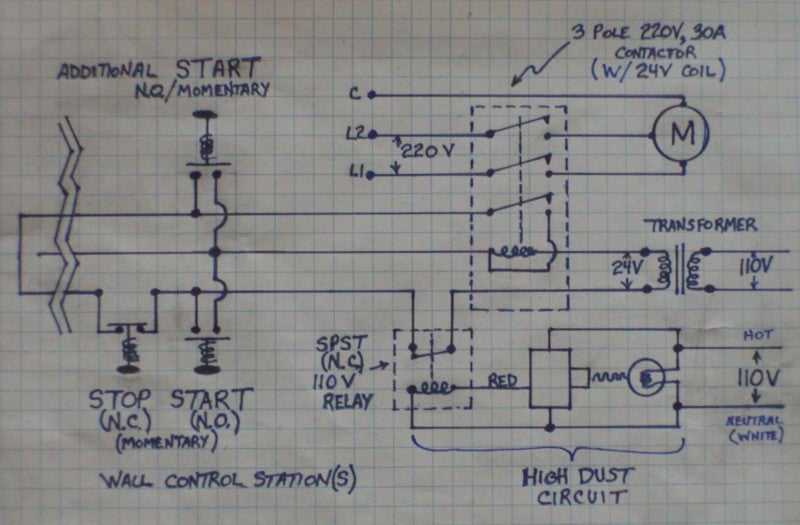 3 POLE 220V, 30A
CONTACTOR
(W/24V COIL)
ADDITIONAL START
N.O./MOMENTARY
C
L2
220V
L1
M
TRANSFORMER
24V
110V
SPST
(N.C.)
110V
RELAY
RED
HOT
110V
NEUTRAL
(WHITE)
STOP
(N.C.)
(MOMENTARY)
START
(N.O.)
WALL CONTROL STATION(S)
HIGH DUST
CIRCUIT